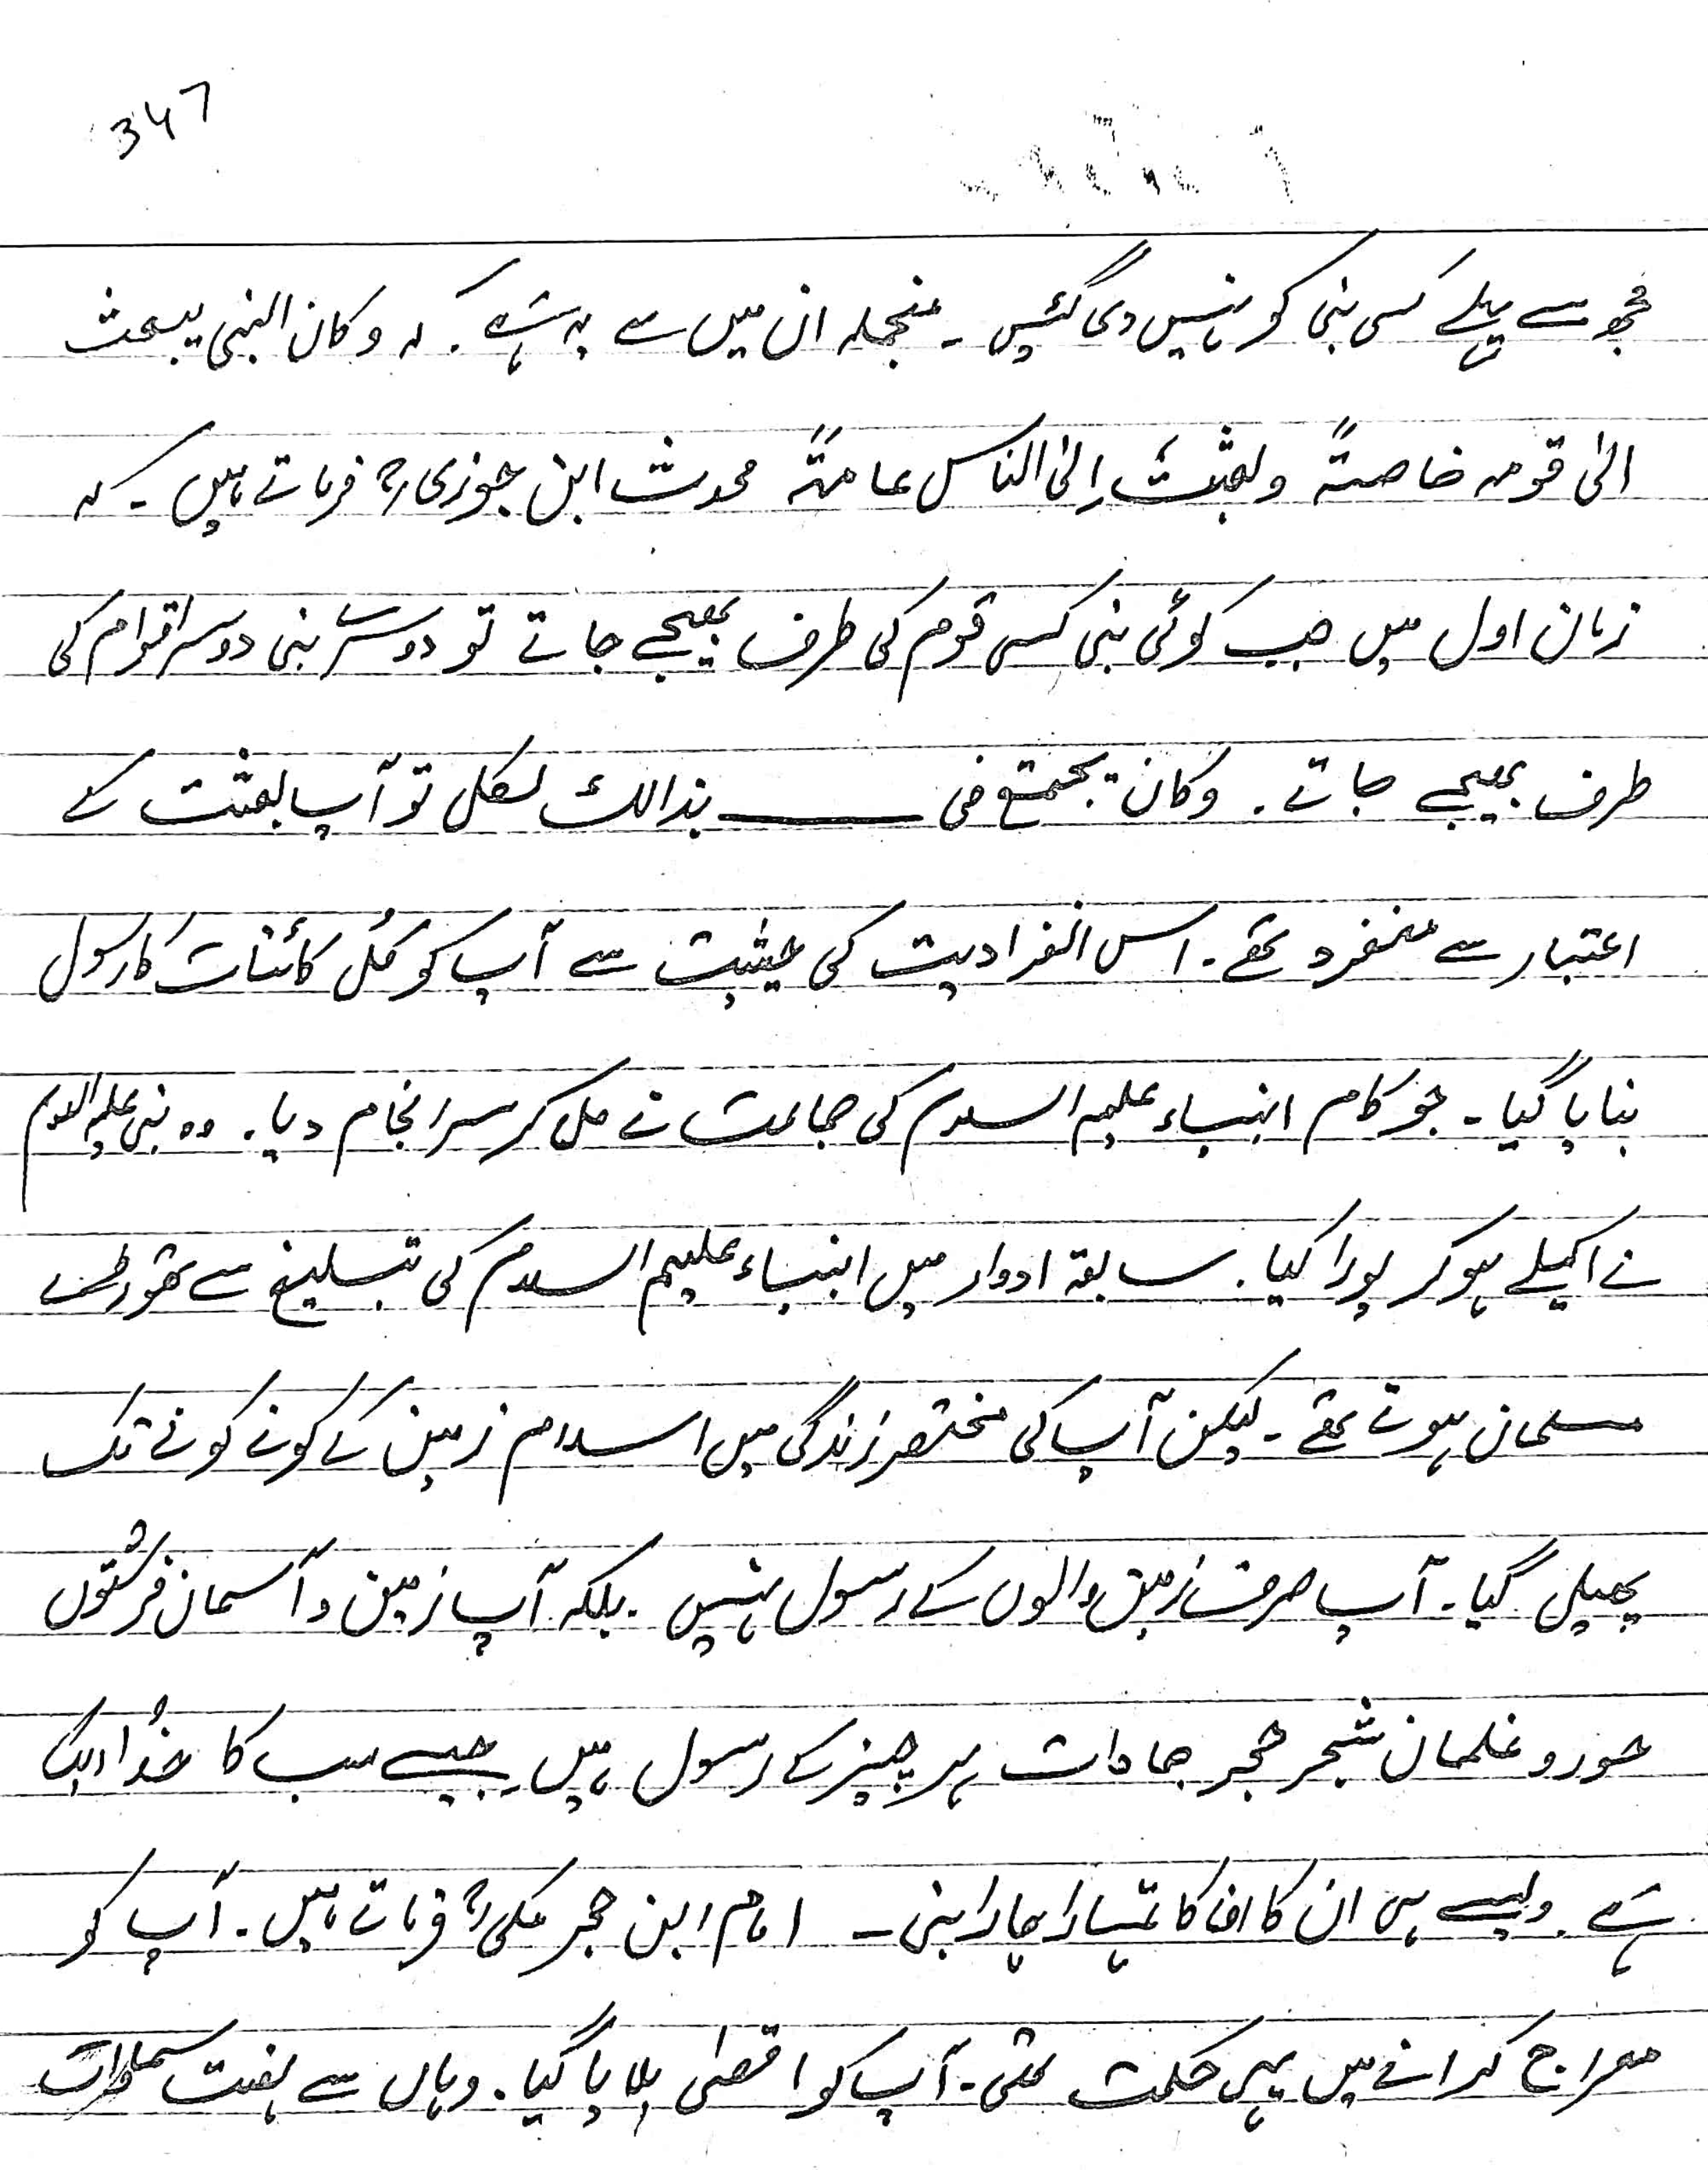 347
مجھ سے پہلے کسی نبی کو نہیں دی گئیں ۔ منجملہ ان میں سے یہ ہے ۔ کہ و کان النبی یبعث
الیٰ قومہ خاصتہً وبعثت اِلیٰ الناس عامتہً محدث ابن جوزی رح فرماتے ہیں ۔ کہ
زمان اول میں جب کوئی نبی کسی قوم کی طرف بھیجے جاتے تو دوسرے نبی دوسر اقوام کی
طرف بھیجے جاتے ۔ وکان یجتمع فی ــــــــ بذالک لکل تو آپ بعثت کے
اعتبار سے منفرد تھے ۔ اس انفرادیت کی حیثیت سے آپ کو کُل کائنات کا رسول
بنایا گیا ۔ جو کام انبیاء علیہم السلام کی جماعت نے مل کر سرانجام دیا ۔ وہ نبی علیہ السلام
نے اکیلے ہو کر پورا کیا ۔ سابقہ ادوار میں انبیاء علیہم السلام کی تبلیغ سے تھوڑے
مسلمان ہوتے تھے ۔ لیکن آپ کی مختصر زندگی میں اسلام زمین کے کونے کونے تک
پھیل گیا ۔ آپ صرف زمین والوں کے رسول نہیں ۔ بلکہ آپ زمین و آسمان فرشتوں
حور و غلمان شجر حجر جمادات ہر چیز کے رسول ہیں ۔ جیسے سب کا خُدا ایک
ہے ۔ ویسے ہی ان کا تمہارا ہمارا نبی ۔ امام ابن حجر مکی رح فرماتے ہیں ۔ آپ کو
معراج کرانے میں یہی حکمت تھی ۔ آپ کو اقصیٰ بلایا گیا ۔ وہاں سے ہفت سماوات